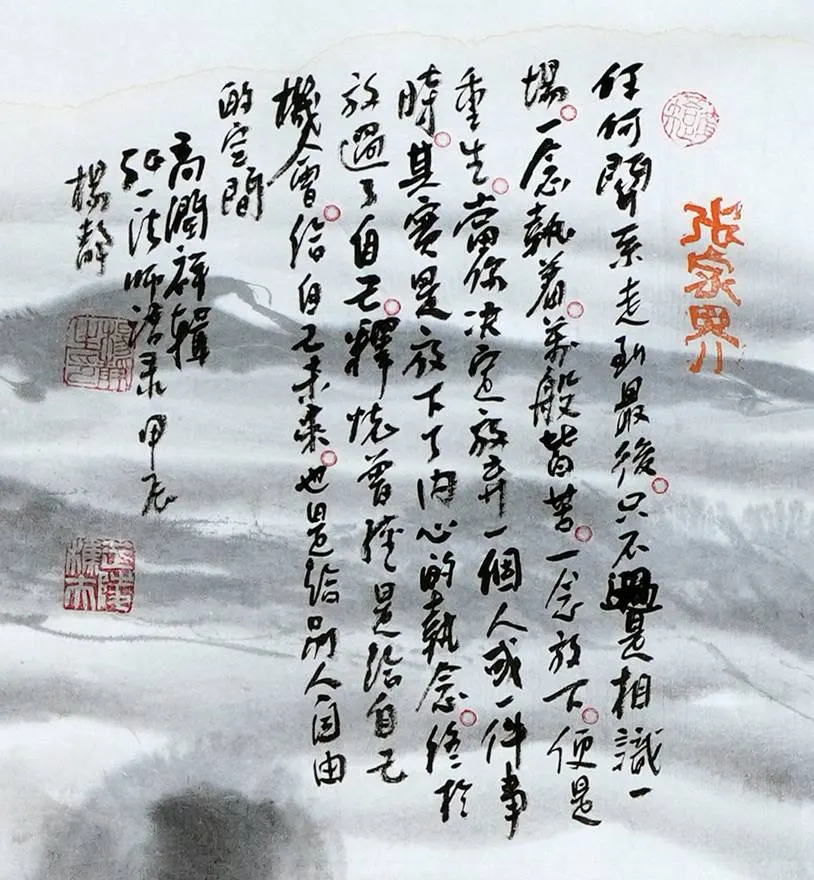 张家界
任何關系走到最後。只不過是相識一
場。一念執着。萬般皆苦。一念放下。便是
重生。當你決定放弃一個人或一件事
時。其實是放下了内心的執念。終於
放過了自己。釋懷曾經是給自己
機會。給自己未來。也是給別人自由
的空間
高潤祥輯
弘一法師語录甲辰
楊靜
楊靜之印